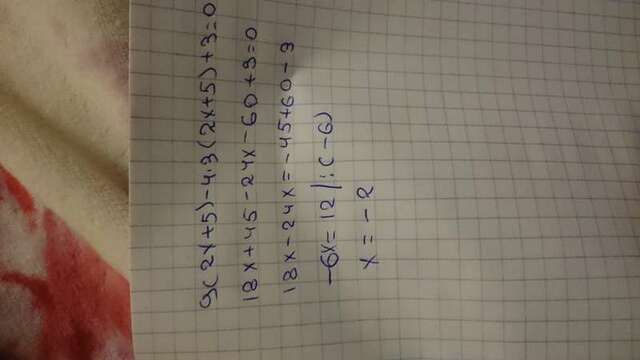 9(2x+5)-4·3(2x+5)+3=0
18x+45-24x-60+3=0
18x-24x=-45+60-3
-6x=12 |:(-6)
x=-2